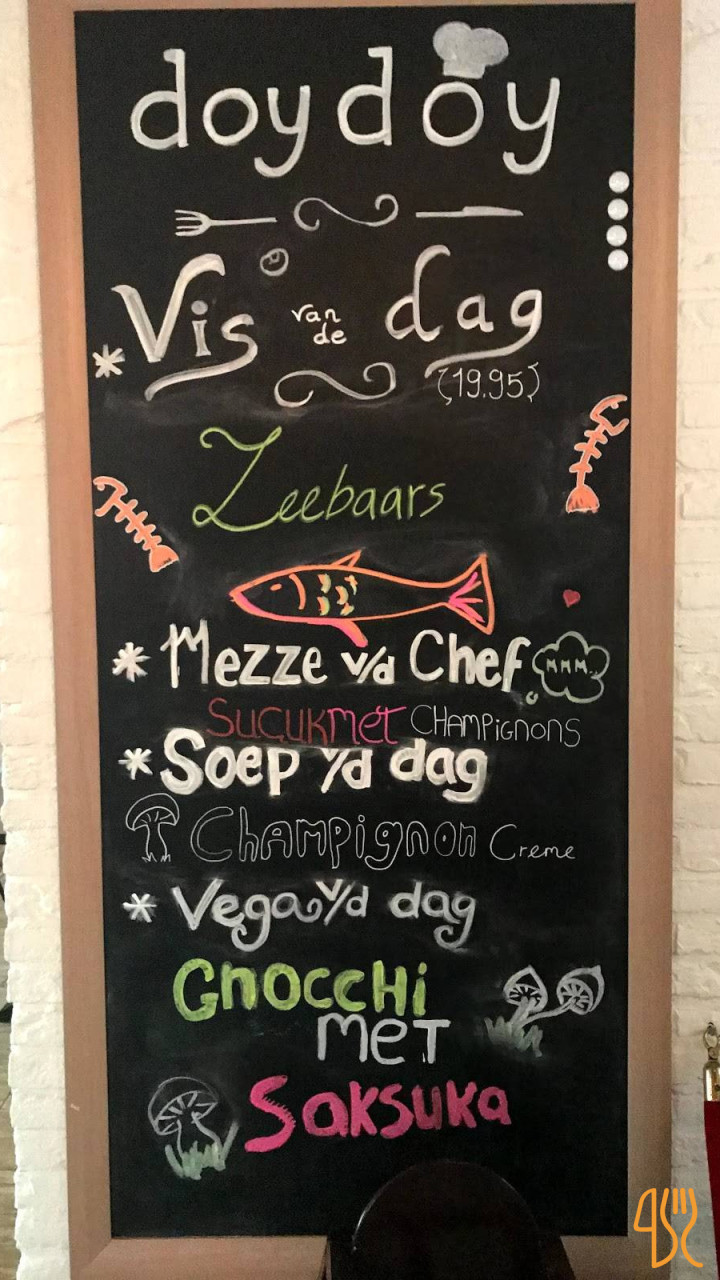 doydoy
* Vis van de dag
(19.95)
Zeebaars
* Mezze v/d Chef
MMM...
SUÇUK MET CHAMPIGNONS
* Soep v/d dag
CHAMPIGNON Creme
* Vega v/d dag
GNOCCHi
MET
SAKSUKA